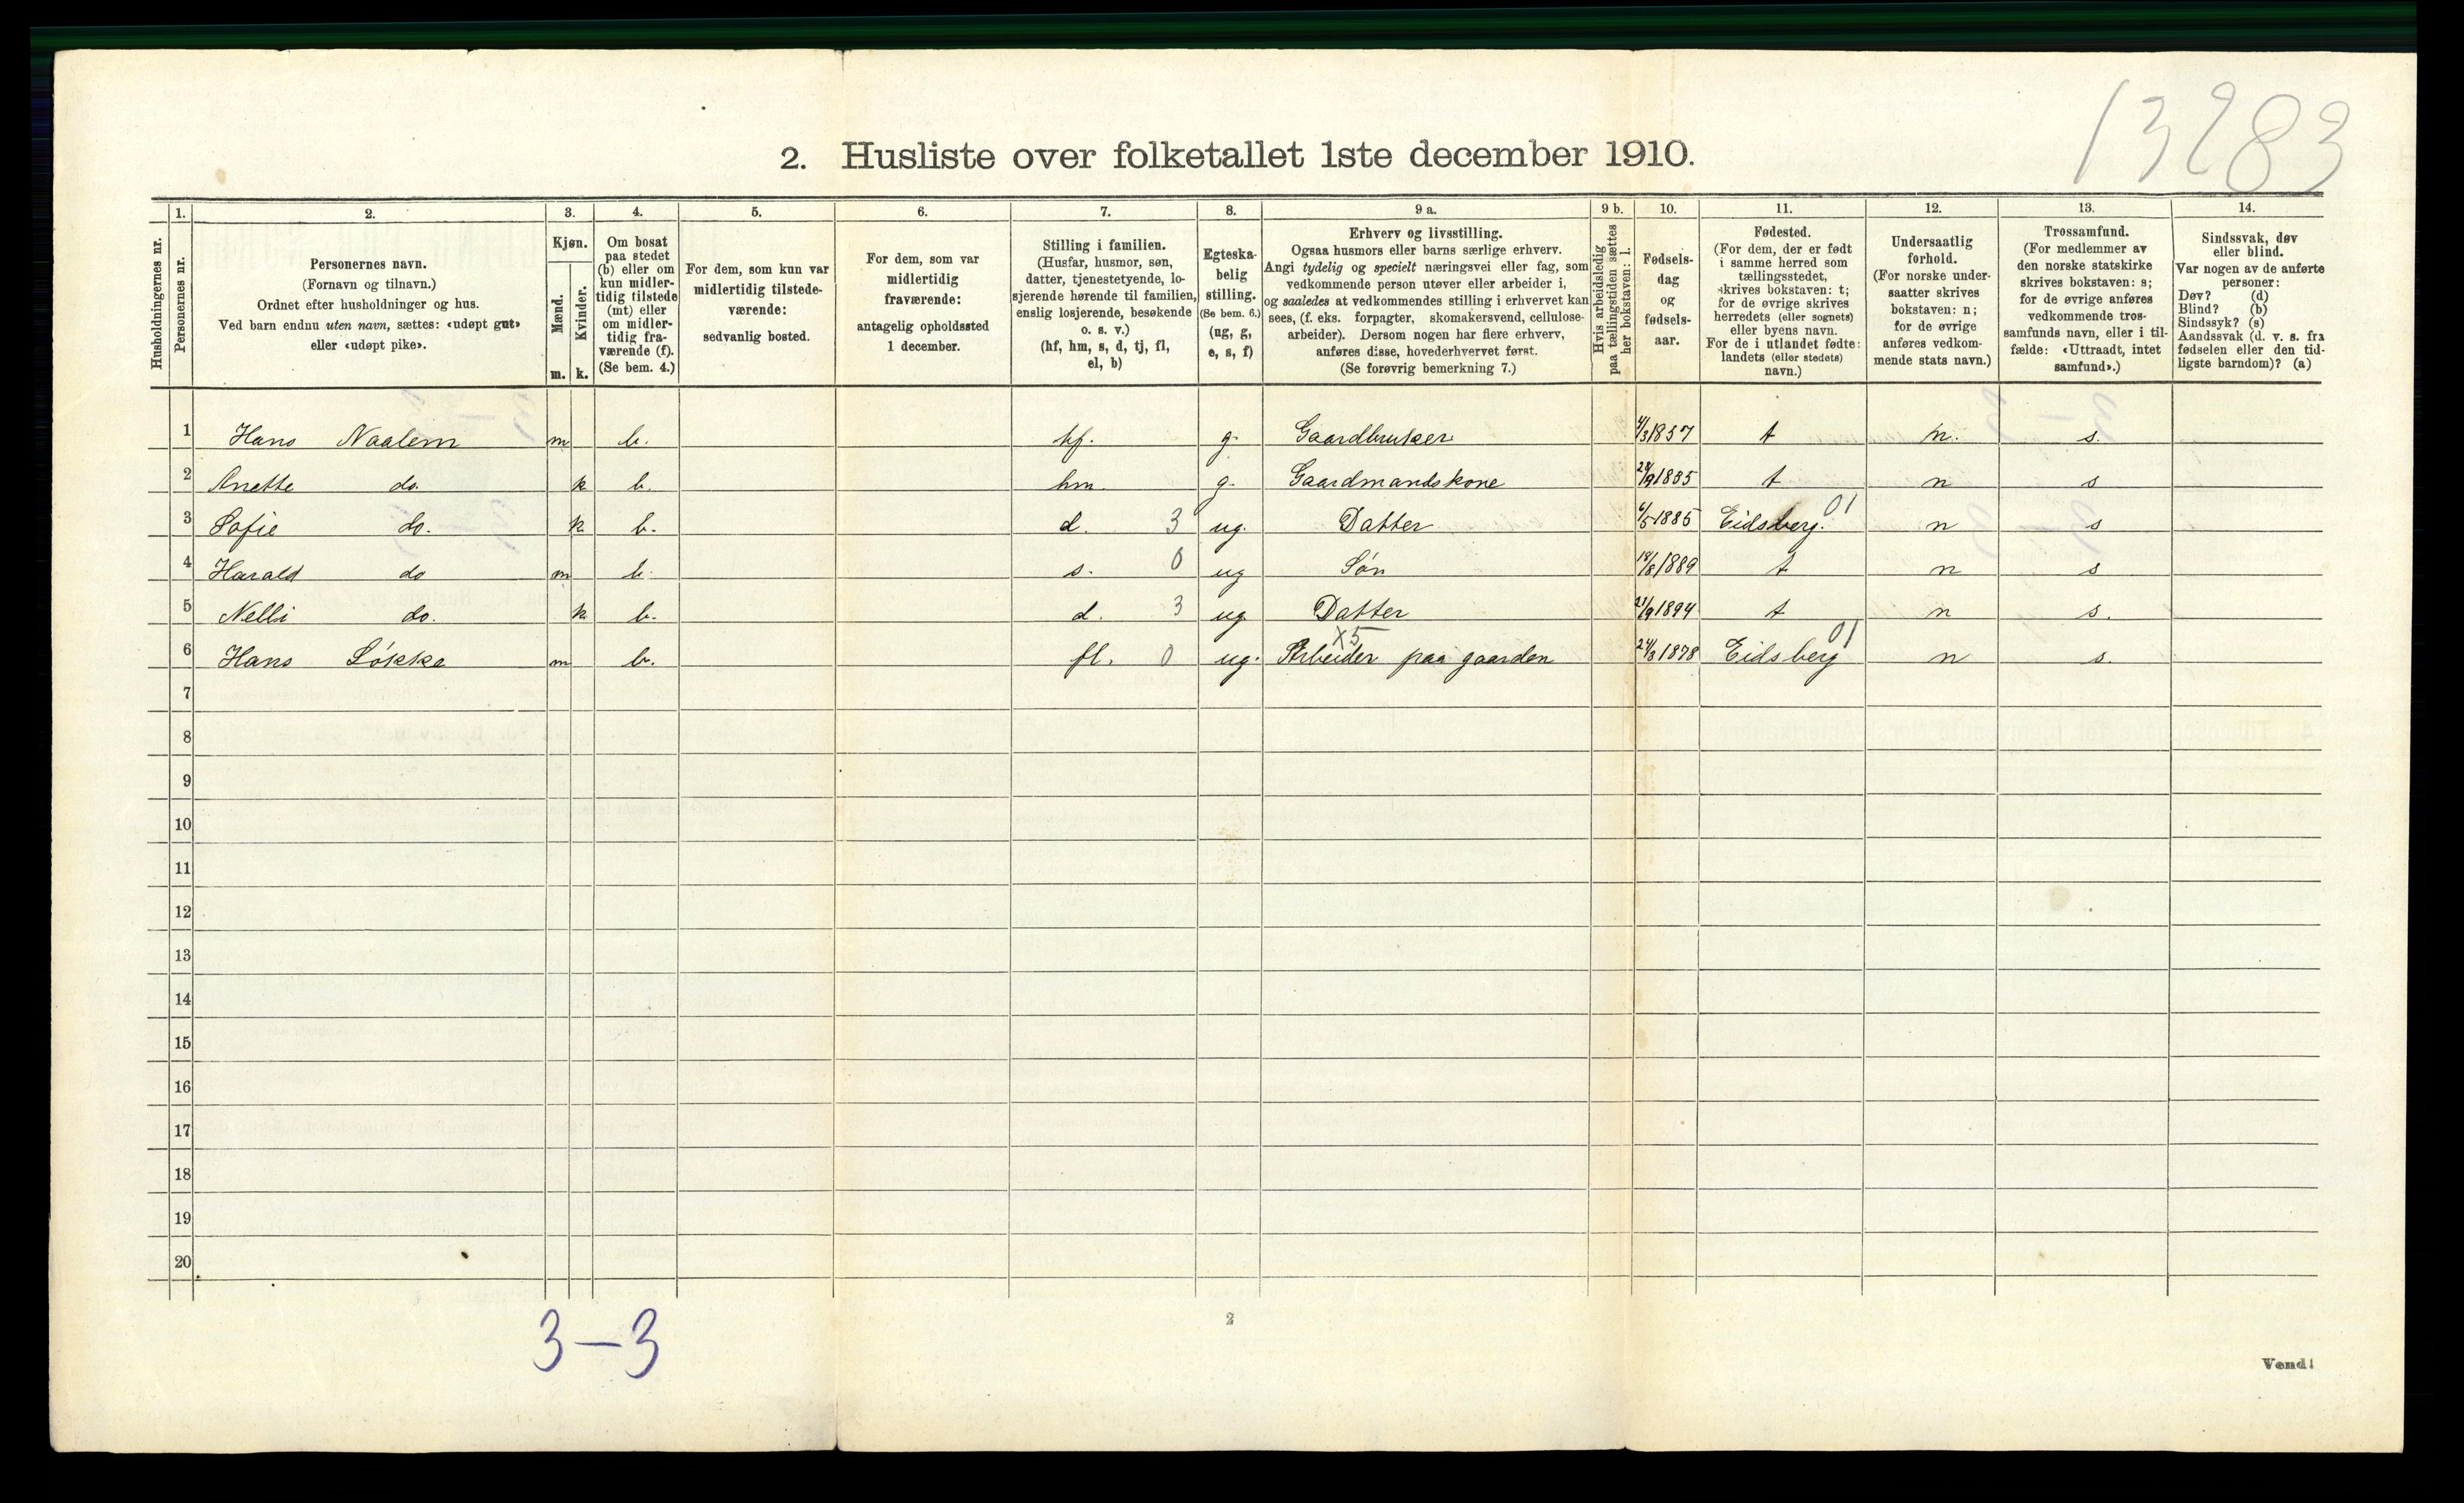 13283
2. Husliste over folketallet 1ste december 1910.
1. 2. 3. 4. 5. 6. 7. 8. 9 a. 9 b. 10. 11. 12. 13. 14.
Husholdningernes nr.
Personernes nr.
Personernes navn.
(Fornavn og tilnavn.)
Ordnet efter husholdninger og hus.
Ved barn endnu uten navn, sættes: «udøpt gut»
eller «udøpt pike».
Kjøn.
Mænd.
Kvinder.
m. k.
Om bosat
paa stedet
(b) eller om
kun midler-
tidig tilstede
(mt) eller
om midler-
tidig fra-
værende (f).
(Se bem. 4.)
For dem, som kun var
midlertidig tilstede-
værende:
sedvanlig bosted.
For dem, som var
midlertidig
fraværende:
antagelig opholdssted
1 december.
Stilling i familien.
(Husfar, husmor, søn,
datter, tjenestetyende, lo-
sjerende hørende til familien,
enslig losjerende, besøkende
o. s. v.)
(hf, hm, s, d, tj, fl,
el, b)
Egteska-
belig
stilling.
(Se bem. 6.)
(ug, g,
e, s, f)
Erhverv og livsstilling.
Ogsaa husmors eller barns særlige erhverv.
Angi tydelig og specielt næringsvei eller fag, som
vedkommende person utøver eller arbeider i,
og saaledes at vedkommendes stilling i erhvervet kan
sees, (f. eks. forpagter, skomakersvend, cellulose-
arbeider). Dersom nogen har flere erhverv,
anføres disse, hovederhvervet først.
(Se forøvrig bemerkning 7.)
Hvis arbeidsledig
paa tællingstiden sættes
her bokstaven: l.
Fødsels-
dag
og
fødsels-
aar.
Fødested.
(For dem, der er født
i samme herred som
tællingsstedet,
skrives bokstaven: t;
for de øvrige skrives
herredets (eller sognets)
eller byens navn.
For de i utlandet fødte:
landets (eller stedets)
navn.)
Undersaatlig
forhold.
(For norske under-
saatter skrives
bokstaven: n;
for de øvrige
anføres vedkom-
mende stats navn.)
Trossamfund.
(For medlemmer av
den norske statskirke
skrives bokstaven: s;
for de øvrige anføres
vedkommende tros-
samfunds navn, eller i til-
fælde: «Uttraadt, intet
samfund».)
Sindssvak, døv
eller blind.
Var nogen av de anførte
personer:
Døv? (d)
Blind? (b)
Sindssyk? (s)
Aandssvak (d. v. s. fra
fødselen eller den tid-
ligste barndom)? (a)
1 Hans Naalem m b. hf. g. Gaardbruker 4/3 1857 t n. s.
2 Anette do. k b. hm. g. Gaardmandskone t n s
3 Sofie do. k b. d. 3 ug. Datter 6/5 1885 Eidsberg. 01 n s
4 Harald do m b. s. 0 ug Søn 18/8 1889 t n s
5 Nelli do. k b. d. 3 ug Datter 21/9 1894 t n s.
6 Hans Løkke m b. fl. 0 ug. Arbeider paa gaarden x5 24/3 1878 Eidsberg 01 n s.
7
8
9
10
11
12
13
14
15
16
17
18
19
20
3-3
2
Vend!